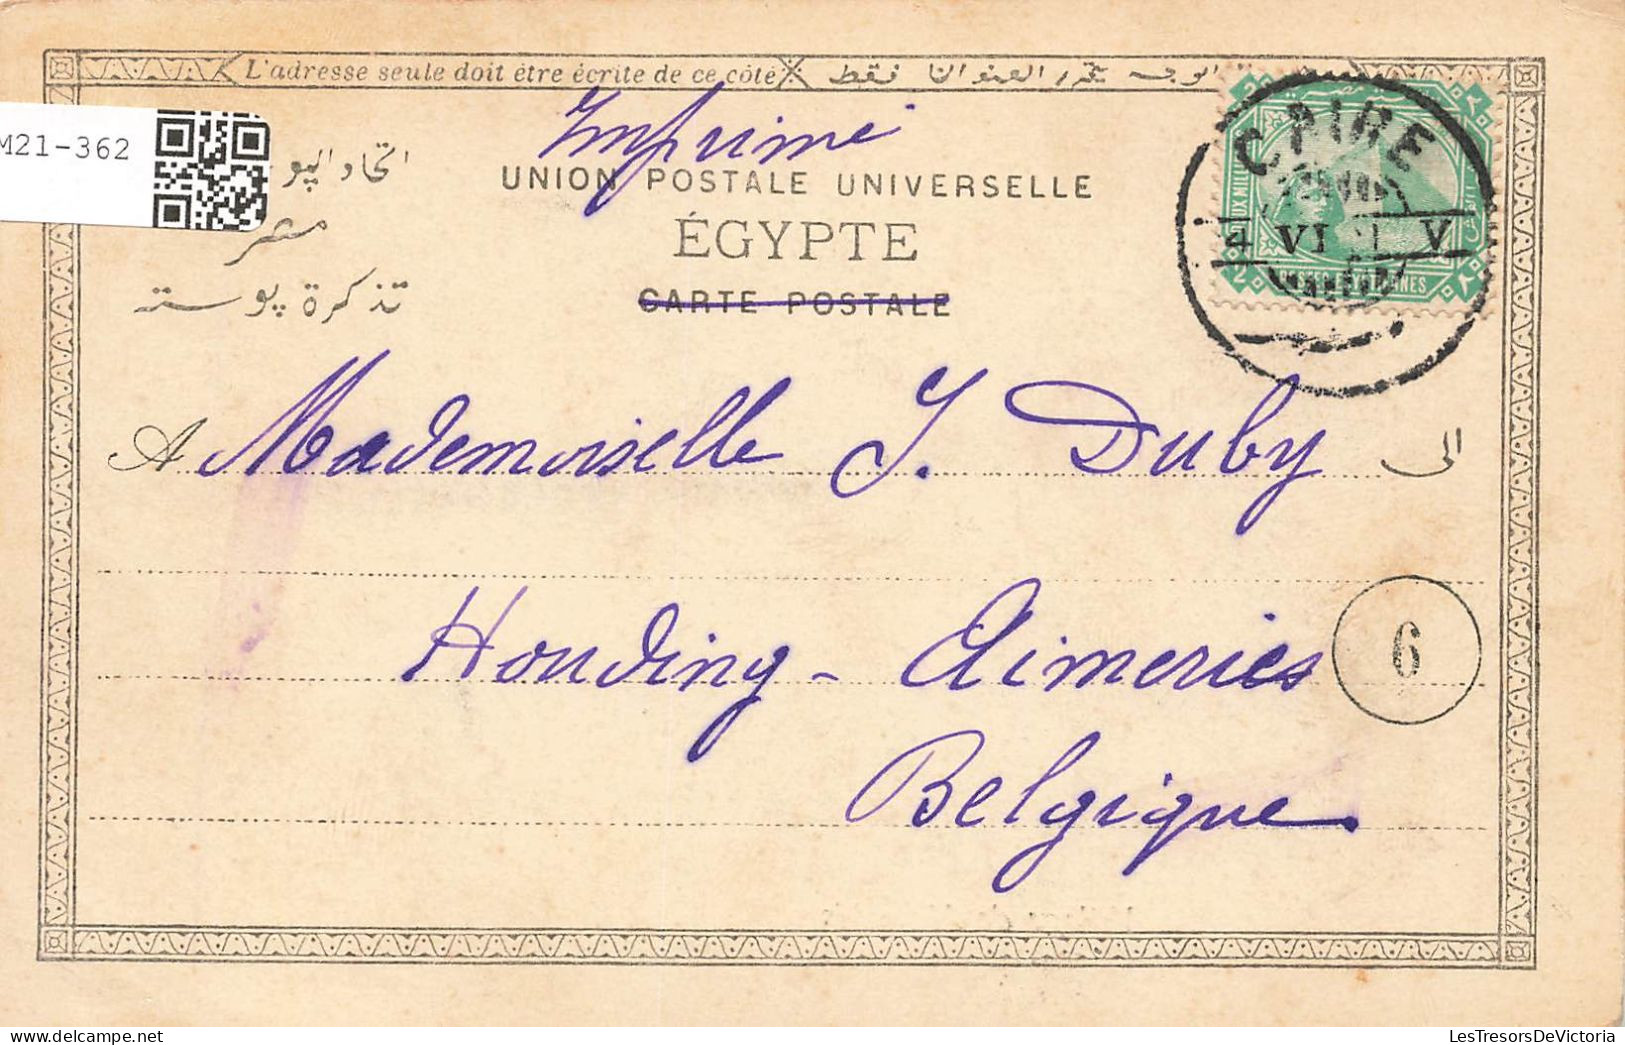 L'adresse seule doit être écrite de ce côté
الوجه يحرر العنوان فقط
M21-362
Imprimé
اتحاد البو
UNION POSTALE UNIVERSELLE
مصر
ÉGYPTE
تذكرة پوسته
CARTE POSTALE
CAIRE
VI
V
2
2
A Mademoiselle J. Duby الى
Houding-Aimeries
6
Belgique
LesTresorsDeVictoria